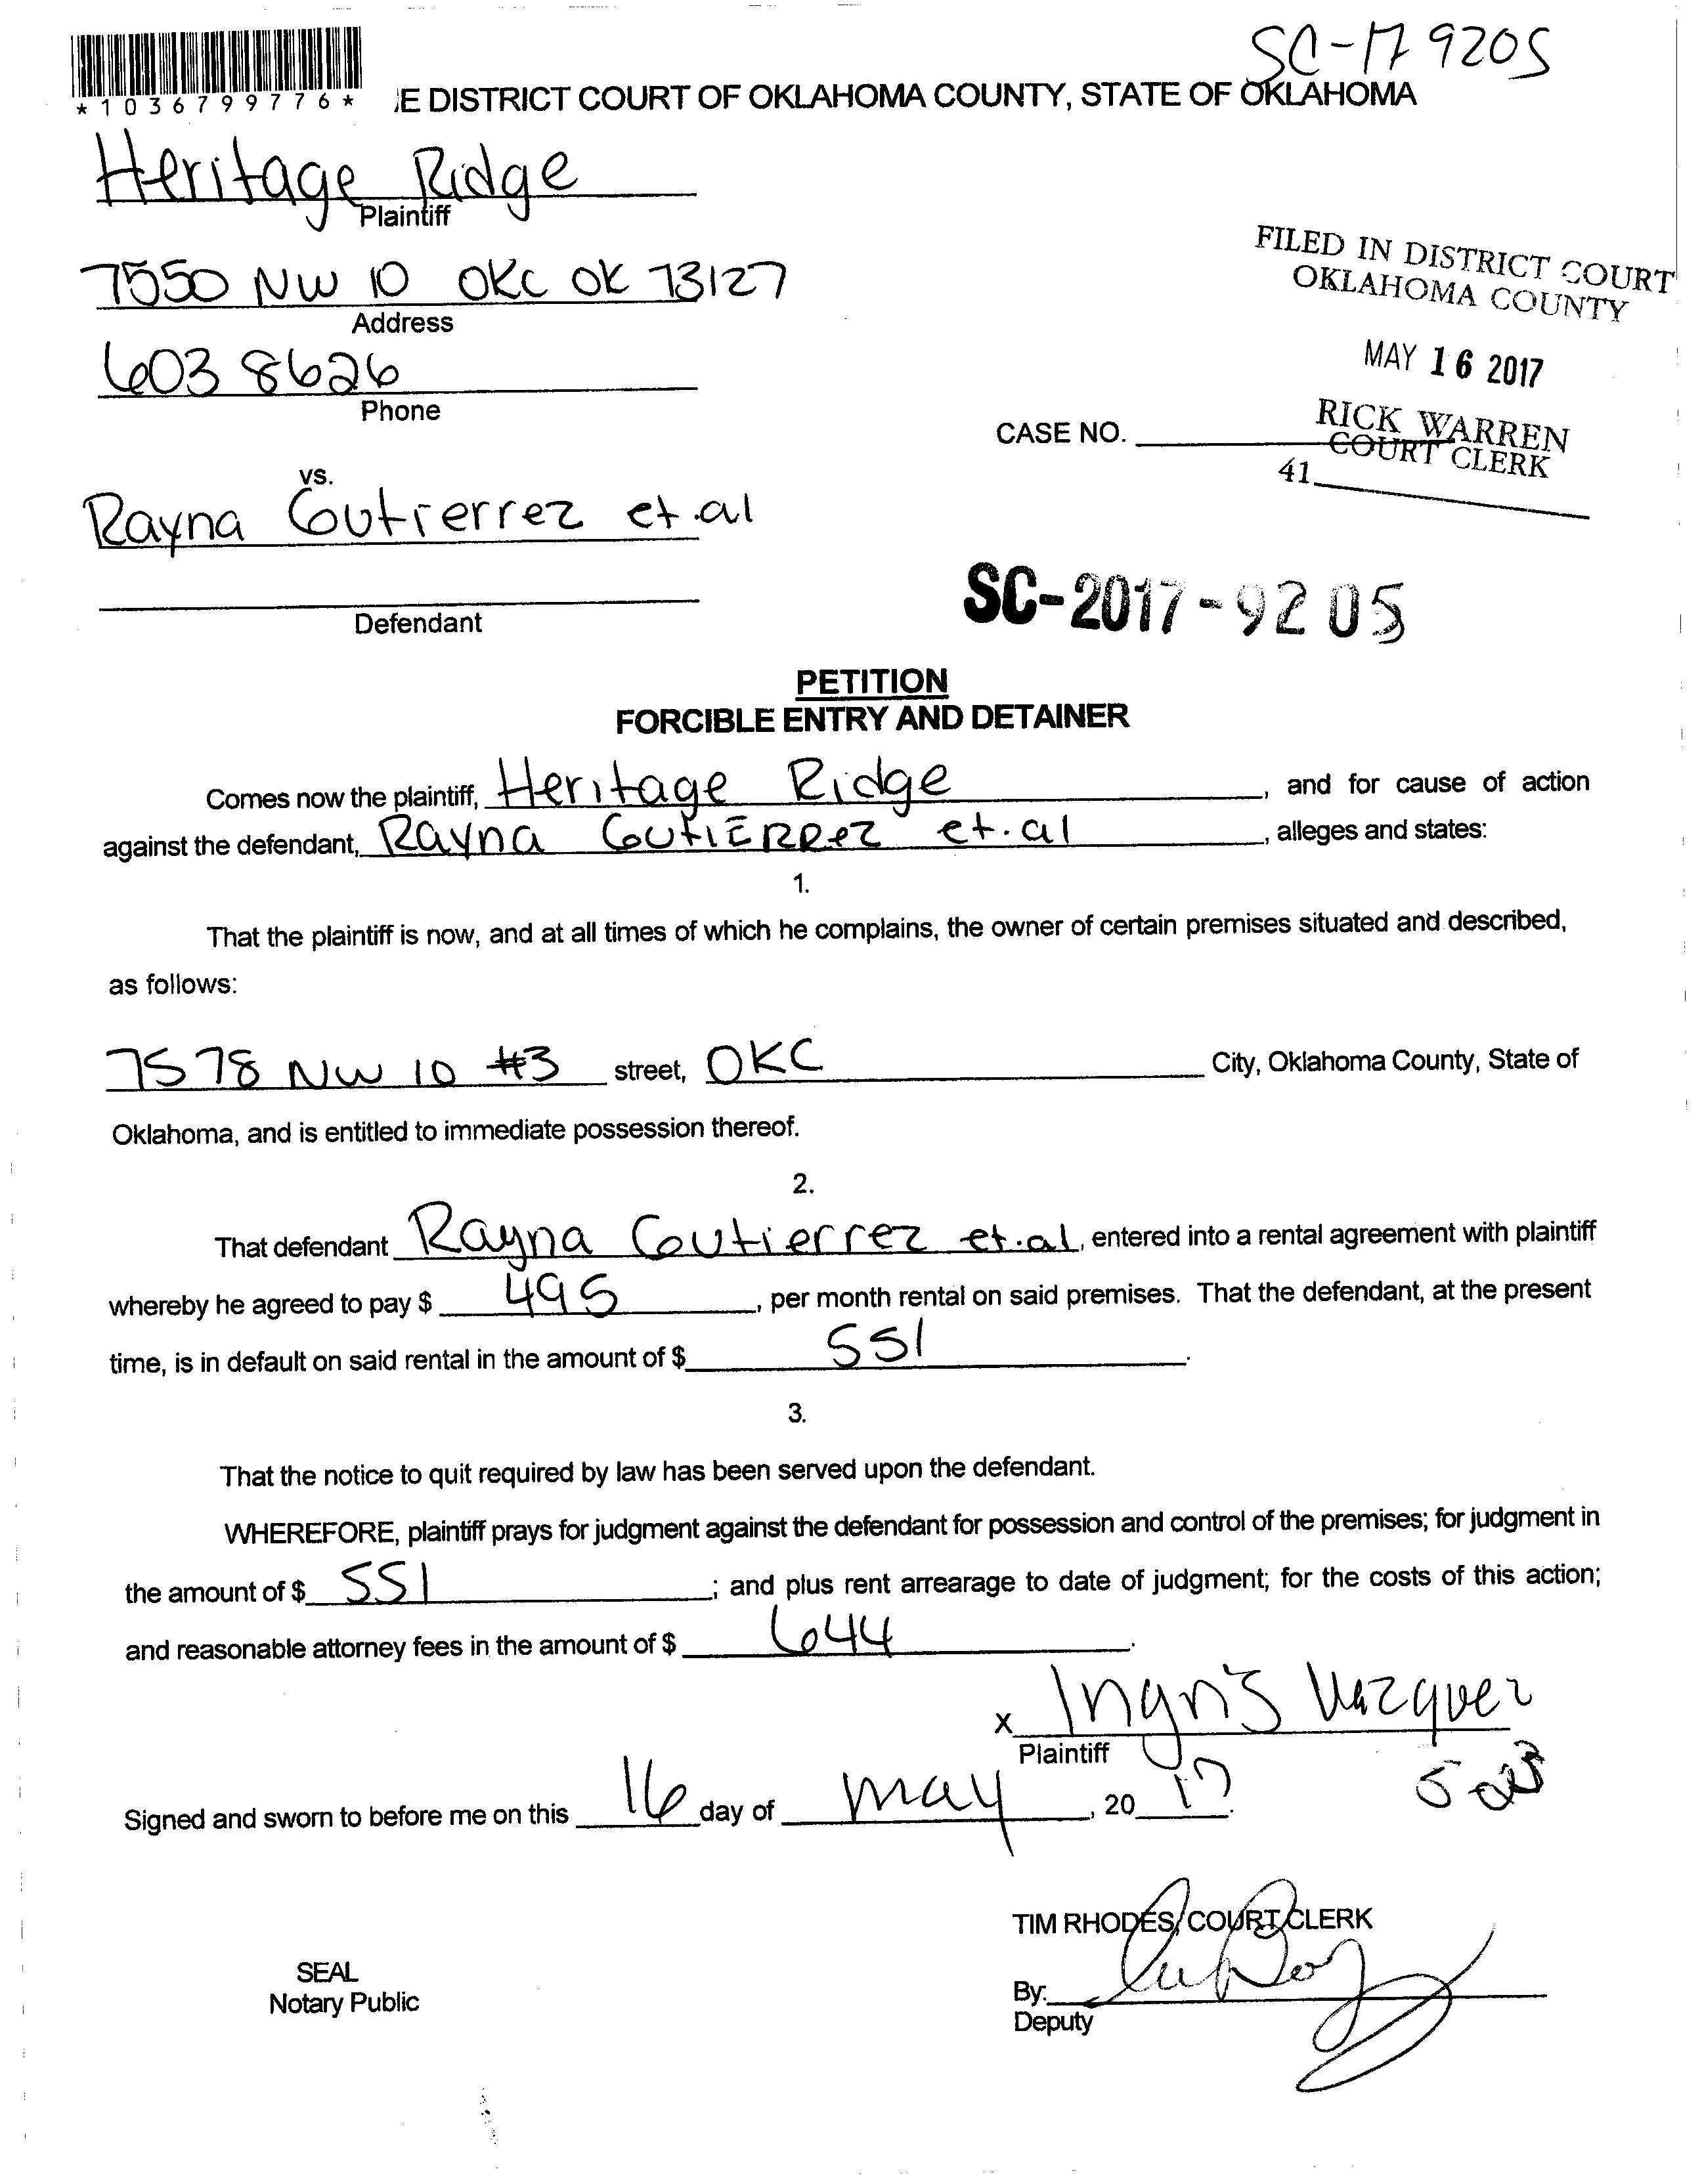 SC-17 9205
*1036799776*
E DISTRICT COURT OF OKLAHOMA COUNTY, STATE OF OKLAHOMA
Heritage Ridge
Plaintiff
7550 NW 10 OKC OK 73127
Address
603 8626
Phone
FILED IN DISTRICT COURT
OKLAHOMA COUNTY
MAY 16 2017
RICK WARREN
COURT CLERK
41
CASE NO.
vs.
Rayna Gutierrez et.al
Defendant
SC-2017-9205
PETITION
FORCIBLE ENTRY AND DETAINER
Comes now the plaintiff, Heritage Ridge, and for cause of action
against the defendant, Rayna GutiERRez et.al, alleges and states:
1.
That the plaintiff is now, and at all times of which he complains, the owner of certain premises situated and described,
as follows:
7578 NW 10 #3 street, OKC City, Oklahoma County, State of
Oklahoma, and is entitled to immediate possession thereof.
2.
That defendant Rayna Gutierrez et.al, entered into a rental agreement with plaintiff
whereby he agreed to pay $ 495, per month rental on said premises. That the defendant, at the present
time, is in default on said rental in the amount of $ 551.
3.
That the notice to quit required by law has been served upon the defendant.
WHEREFORE, plaintiff prays for judgment against the defendant for possession and control of the premises; for judgment in
the amount of $ 551; and plus rent arrearage to date of judgment; for the costs of this action;
and reasonable attorney fees in the amount of $ 644.
x Ingris Vazquez
Plaintiff
Signed and sworn to before me on this 16 day of may, 20 17.
TIM RHODES, COURT CLERK
SEAL
Notary Public
By:
Deputy